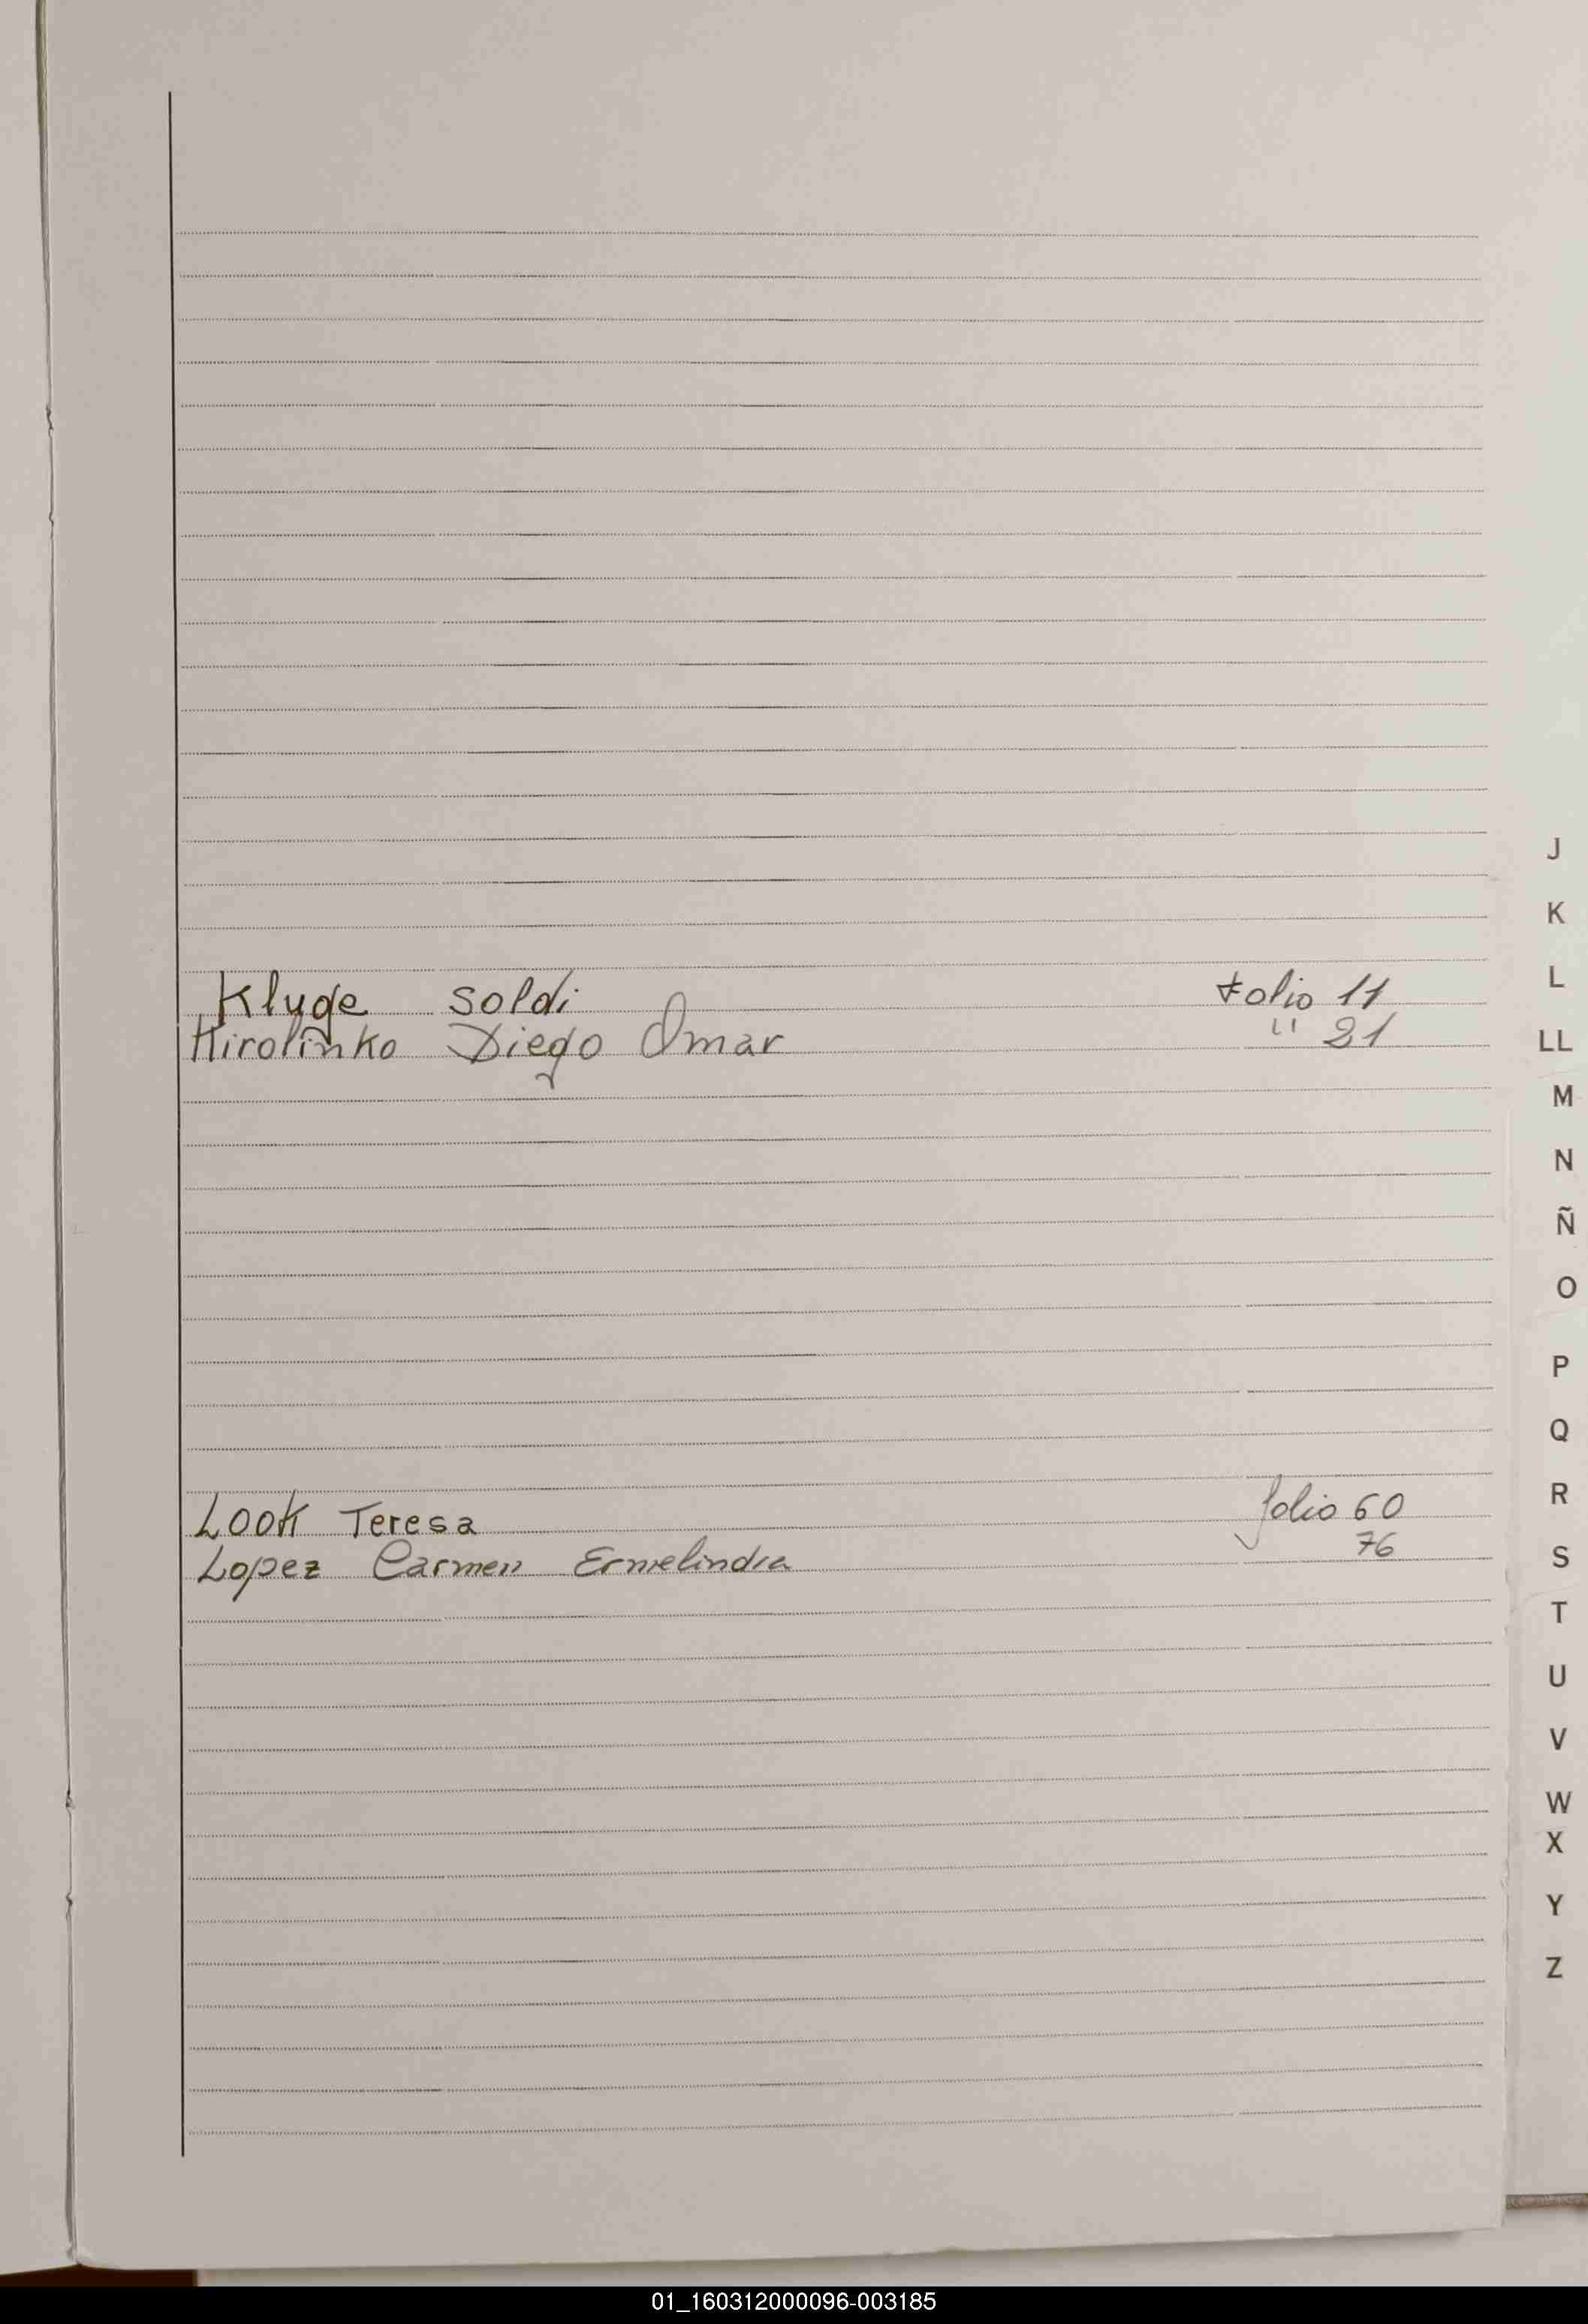 J
K
Kluge Soldi folio 11
L
Kirolinko Diego Omar " 21
LL
M
N
Ñ
O
P
Q
R
Look Teresa folio 60
Lopez Carmen Ermelindra 76
S
T
U
V
W
X
Y
Z
01_160312000096-003185